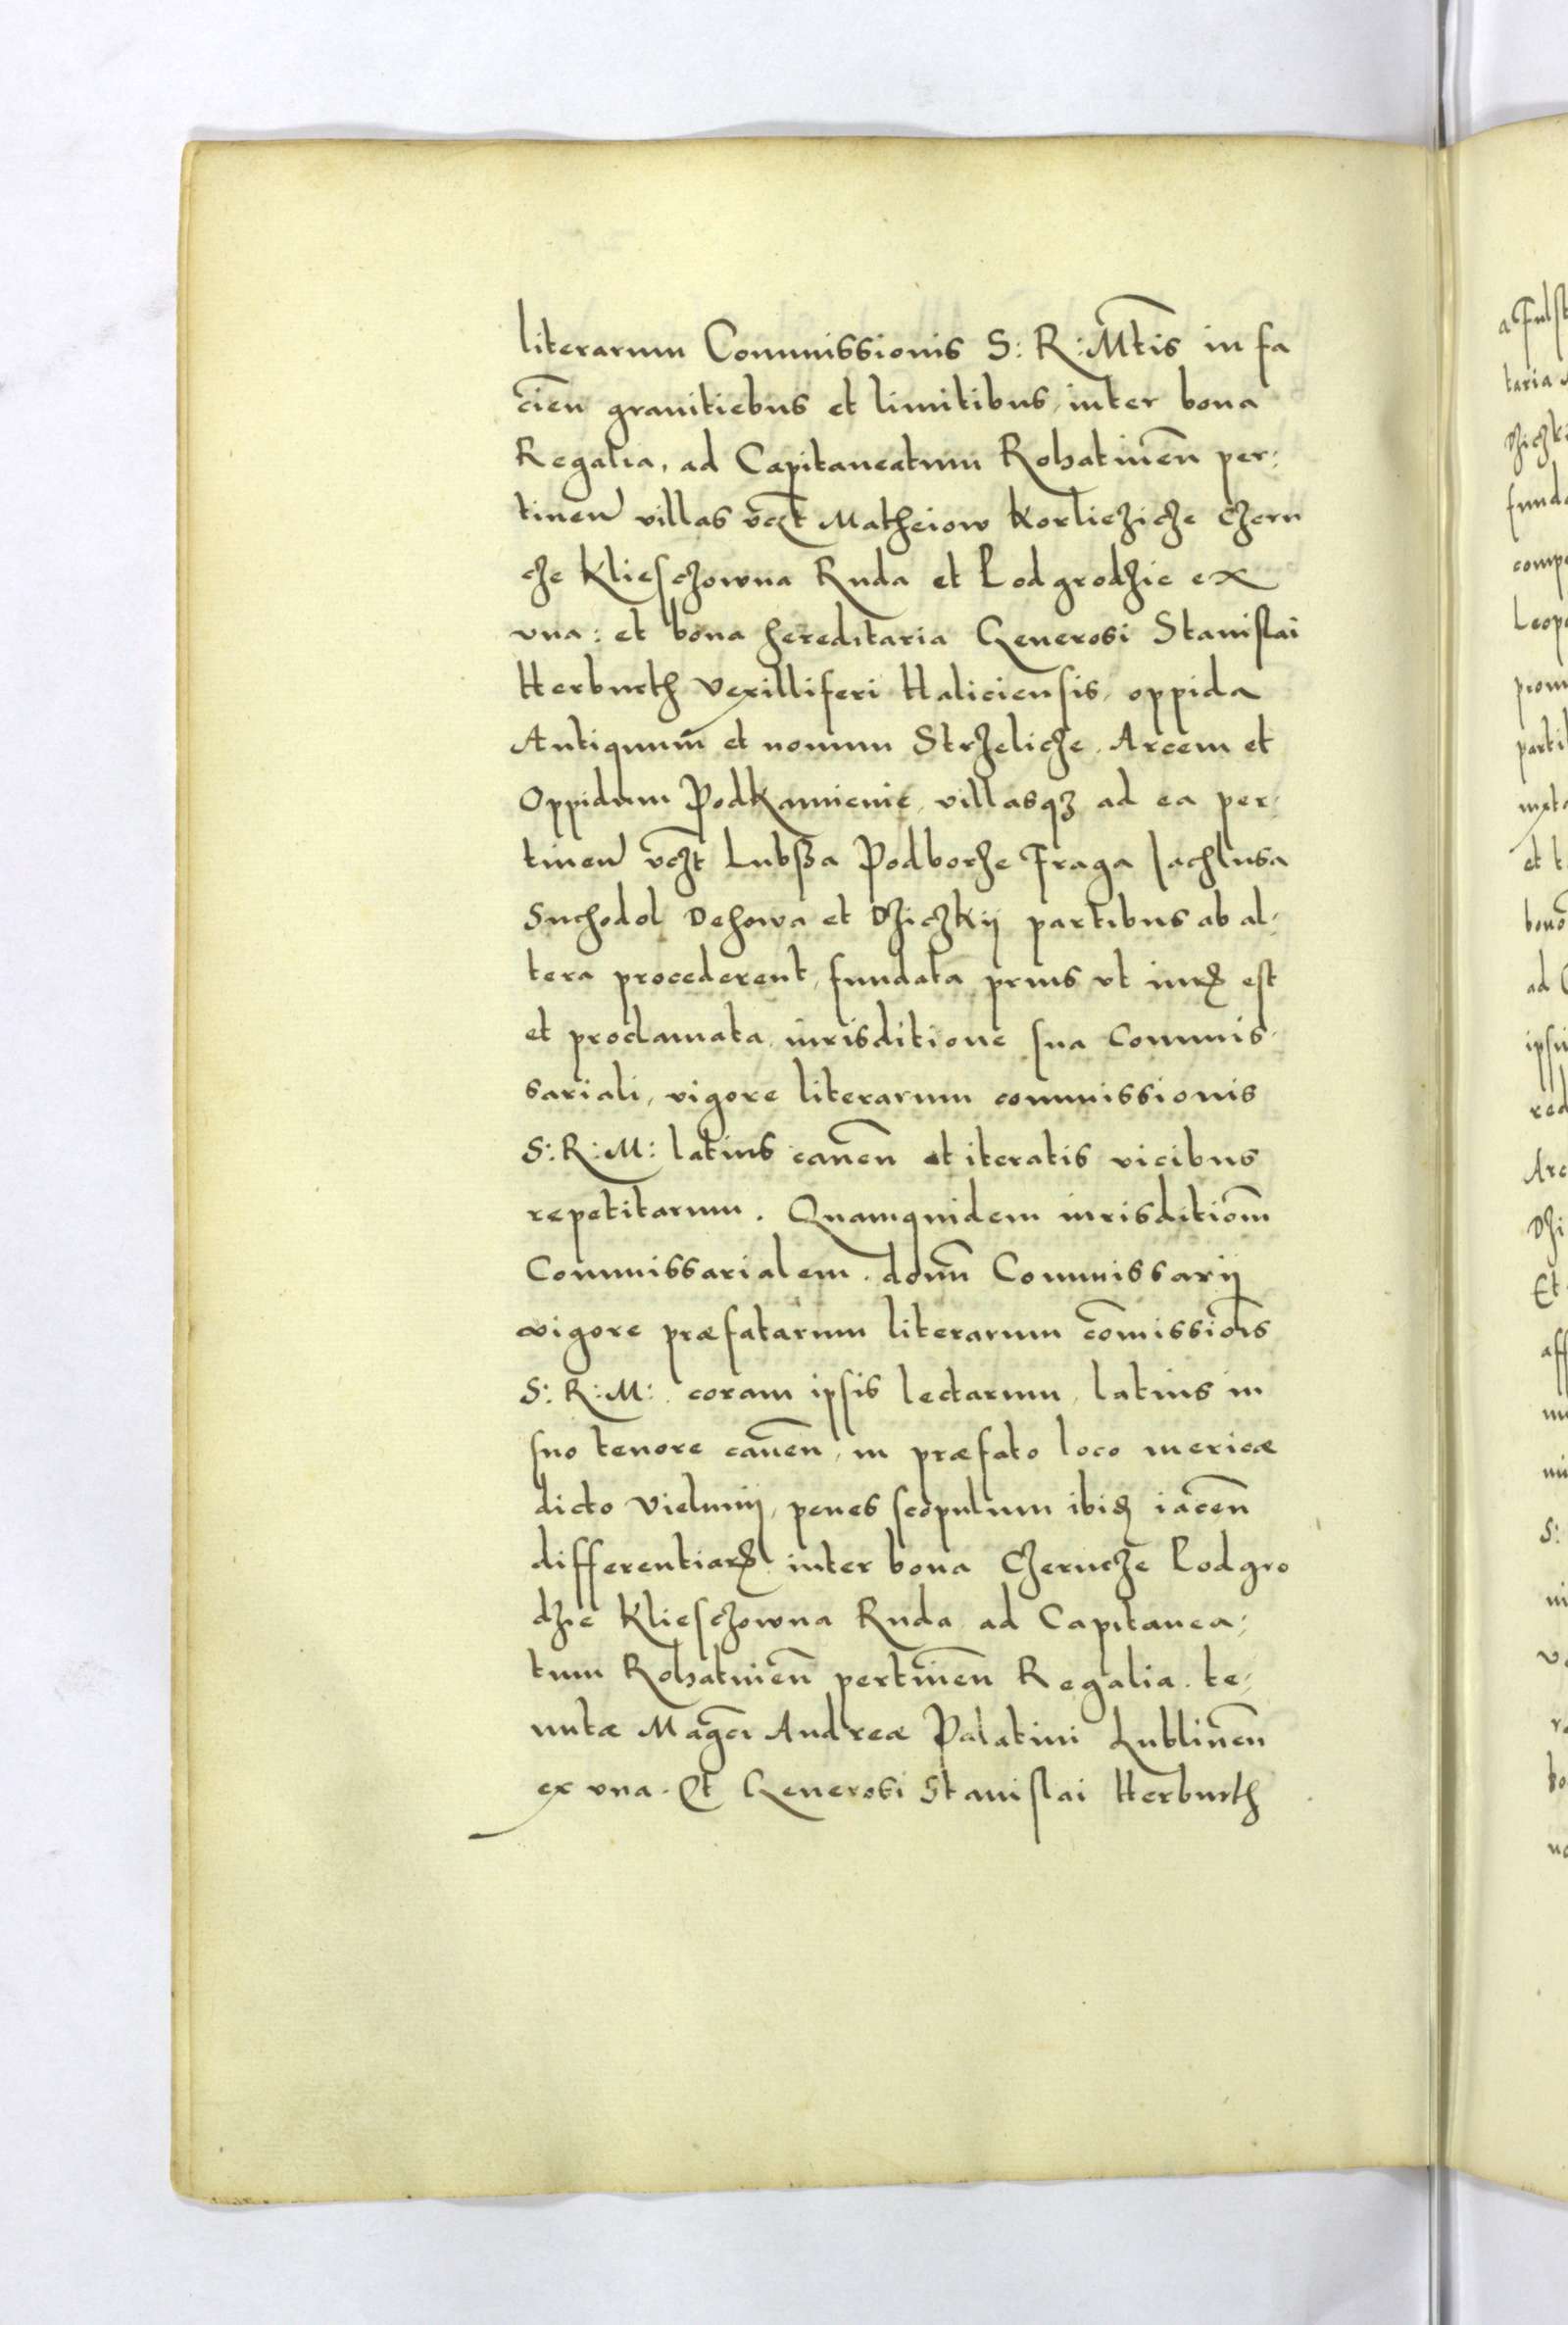 literarum Commissionis S: R: Mtis in fa
cien̄ granitiebus et limitibus, inter bona
Regalia, ad Capitaneatum Rohatinen̄ per:
tinen villas vczt Matheiow Korlicziche Czern
che Klieschowna Ruda et Podgrodzie ex
vna: et bona hereditaria Generosi Stanislai
Herburth Vexilliferi Haliciensis, oppida
Antiquum et nouum Strzelicze. Arcem et
Oppidum Podkamienie, villasqз ad ea per:
tinen vczt Lubssa Podborze Fraga Jachlusa
Suchodol Dehowa et Dziczkij partibus ab al:
tera procederent, fundata prius vt iuris est
et proclamata iurisditione sua Commis:
sariali, vigore literarum commissionis
S: R: M: latius canen̄ et iteratis vicibus
repetitarum. Quamquidem iurisditiom̄
Commissarialem. domn̄ Commissarij
vigore præfatarum literarum com̄issiois
S: R: M: coram ipsis lectarum, latius in
suo tenore canen̄, in præfato loco mericæ
dicto Vielumij, penes scopulum ibid iacen̄
differentiar inter bona Czerncze Podgro
dzie Klieschowna Ruda ad Capitanea:
tum Rohatinen̄ pertinen̄ Regalia. te:
nutæ Magci Andreæ Palatini Lublinen̄
ex vna. Et Generosi Stanislai Herburth